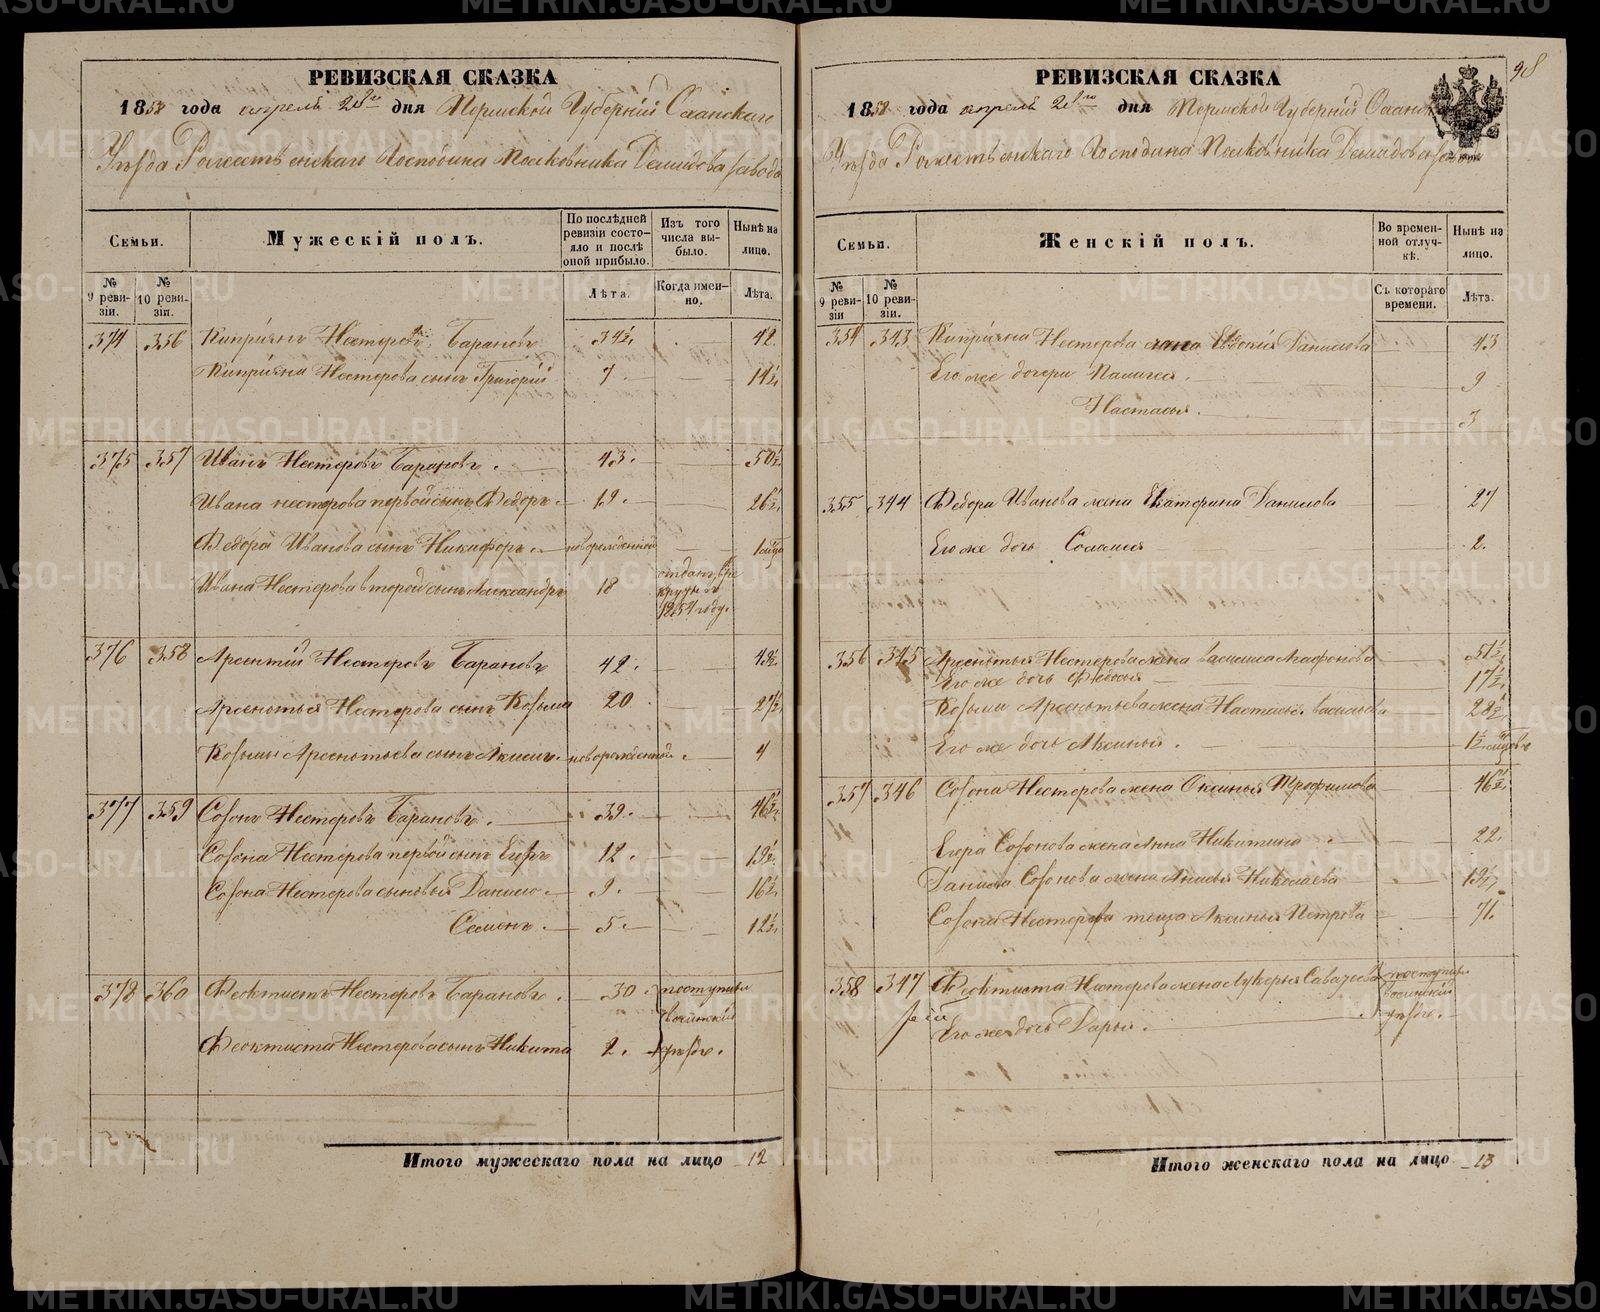 98
РЕВИЗСКАЯ СКАЗКА
1858 года апреля дня Пермской Губернии Оханскаго
Уѣзда Рожественскаго Господина Полковника Демидова завода
Семьи.
Мужескій полъ.
По послѣдней ревизіи состояло и послѣ оной прибыло.
Изъ того числа выбыло.
Нынѣ на лицо.
№ 9 ревизіи.
№ 10 ревизіи.
Лѣта.
Когда именно.
Лѣта.
374 356 Киприянъ Нестеровъ Барановъ 34½ 42
Киприяна Нестерова сынъ Григорій 7 14½
375 357 Иванъ Нестеровъ Барановъ. 43. 50½
Ивана Нестерова первой сынъ Федоръ. 19. 26½
Федора Иванова сынъ Никифоръ. новорожденной
Ивана Нестерова второй сынъ Александръ 18 отданъ в рекруты в 1854 году.
376 358 Арсентій Нестеровъ Барановъ 42.
Арсентья Нестерова сынъ Козьма 20 27½
Козьмы Арсентьева сынъ Акимъ. новорожденной. 4
377 359 Созонъ Нестеровъ Барановъ. 39. 46½
Созона Нестерова первой сынъ Егоръ 12. 19½
Созона Нестерова сыновья Данило 9. 16½
Семенъ. 5. 12½
378 360 Феоктистъ Нестеровъ Барановъ. 30. поступили
Феоктиста Нестерова сынъ Никита 2. уѣздъ.
Итого мужескаго пола на лицо 12
РЕВИЗСКАЯ СКАЗКА
1858 года апреля дня Пермской Губерніи
Уѣзда Рожественскаго Господина Полковника Демидова завода
Семьи.
Женскій полъ.
Во временной отлучкѣ.
Нынѣ на лицо.
№ 9 ревизіи
№ 10 ревизіи.
Съ котораго времени.
Лѣта.
354 343 Киприяна Нестерова жена Евдокия Данилова 43
Его же дочери Палагея. 9
Настасья. 3
355 344 Федора Иванова жена Екатерина Данилова 27
Его же дочь 2.
356 345 Арсентья Нестерова жена Василиса Агафонова 51½
Его же дочь Федосья 17½
Козьмы Арсентьева жена Настасья Васильева 28½
Его же дочь Аксинья.
357 346 Созона Нестерова жена Оксинья Трофимова 46½
Егора Созонова жена Анна Никитина 22.
Данила Созонова жена Никołаева 19½
Созона Нестерова теща Аксинья Петрова 71.
358 347 Феоктиста Нестерова жена Лукерья поступили
Его же дочь Дарья. уѣздъ.
Итого женскаго пола на лицо 13
METRIKI.GASO-URAL.RU